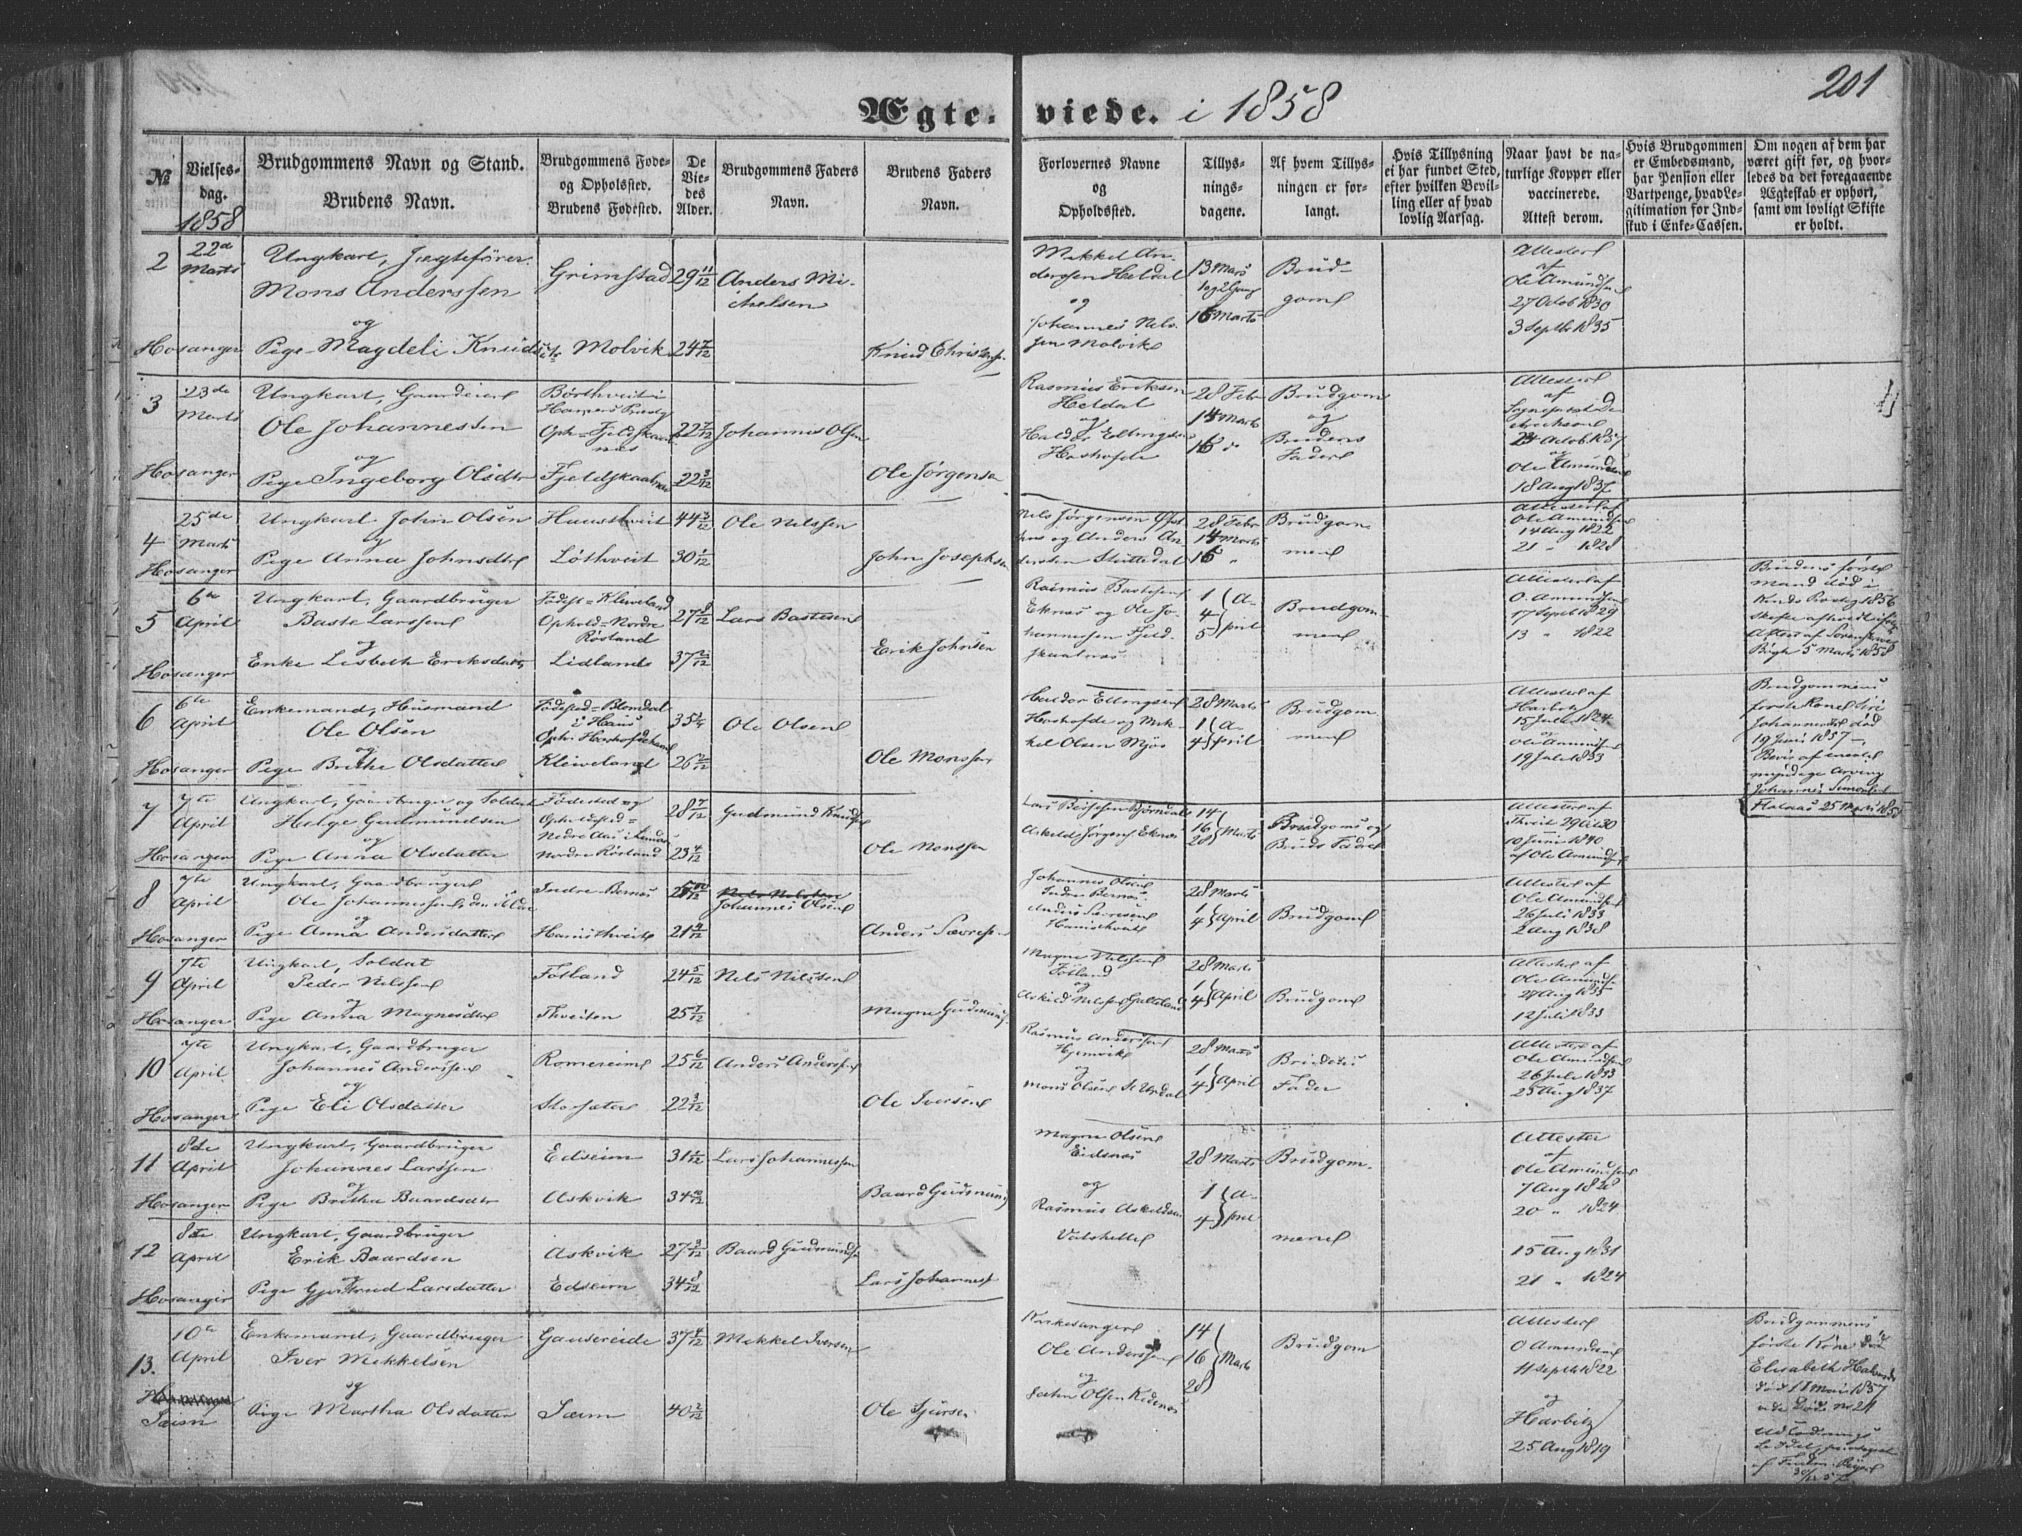 201
Ægte- viede. i 1858
№
Vielses-
dag.
1858
Brudgommens Navn og Stand.
Brudens Navn.
Brudgommens Føde-
og Opholdsted.
Brudens Fødested.
De
Vie-
des
Alder.
Brudgommens Faders
Navn.
Brudens Faders
Navn.
Forlovernes Navne
og
Opholdssted.
Tillys-
nings-
dagene.
Af hvem Tillys-
ningen er for-
langt.
Hvis Tillysning
ei har fundet Sted,
efter hvilken Bevil-
ling eller af hvad
lovlig Aarsag.
Naar havt de na-
turlige Kopper eller
vaccinerede.
Attest derom.
Hvis Brudgommen
er Embedsmand,
har Pension eller
Vartpenge, hvad Le-
gitimation for Ind-
skud i Enke-Cassen.
Om nogen af dem har
været gift før, og hvor-
ledes da det foregaaende
Ægteskab er ophørt,
samt om lovligt Skifte
er holdt.
2
22de
Marts
Hosanger
Ungkarl, Jægtefører
Mons Anderssen
og
Pige Magdeli Knudsdtr
Grimstad
Molvik
29 11/12
24 7/12
Anders Mi-
chelsen
Knud Christens.
Mikkel An-
derssen Heldal
og
Johannes Nils-
sen Molvik
13 Mars
1 og 2 Gang
16 Marts
Brud-
gom
Attester
af
Ole Amundsen
27 Octob 1830
3 Septb 1835
3
23de
Marts
Hosanger
Ungkarl, Gaardeier
Ole Johannessen
og
Pige Ingeborg Olsdtr
Børthveit i
Hammers Præstg
Oph = Fjeldskaal-
næs
Fjeldskaalnæs
22 7/12
22 3/12
Johannes Olsen
Ole Jørgensen
Rasmus Eriksen
Heldal
og
Haldor Ellingsen
Hoshofde
28 Febr
14 Marts
16 "
Brudgom
og
Brudens
Fader
Attester
af
Sognepræst Di-
drichsen
24 Octob 1837
og
Ole Amundsen
18 Aug 1837
4
25de
Marts
Hosanger
Ungkarl John Olsen
og
Pige Anna Johnsdtr
Hausthveit
Løthveit
44 3/12
30 1/12
Ole Nilssen
John Josephsen
Nils Jørgensen
og Anders An-
derssen Stuttedal
28 Febr
14 Marts
16 "
Brudgom
men
Attester af
Ole Amundsen
14 Aug 1822
21 " 1828
5
6te
April
Hosanger
Ungkarl, Gaardbruger
Baste Larssen
og
Enke Lisbeth Eriksdatter
Fødest = Kleiveland
Ophold = Nordre
Røsland
Lidland
27 8/12
37 2/12
Lars Bastesen
Erik Johnsen
Rasmus Bastesen
Eknæs og Ole Jo-
hannessen Fjeld-
skaalnæs
1 A-
4 pril
5
Brudgom
men
Attester af
O. Amundsen
17 Septb 1829
13 " 1822
Brudens første
Mand død i
Kinds Præstg 1856
Skifte afholdt ifølge
Attest af Sorenskriver
Bøgh 5 Marts 1858
6
6te
April
Hosanger
Enkemand, Husmand
Ole Olsen
og
Pige Brithe Olsdatter
Fødested = Blomdal
i Haus
Oph. Hoshofde
Kleiveland
35 1/4
26 2/12
Ole Olsen
Ole Monssen
Haldor Ellingsen
Hoshofde og Mik-
kel Olsen Mjøs
28 Marts
1 A-
4 pril
Brudgom-
men
Attester af
Harbitz
15 Juli 1824
og
Ole Amundsen
19 Juli 1833
Brudgommens
første Kone Siri
Johannesd død
19 Juni 1857 –
Bevis af eneste
myndige Arving
Johannes Simonsen
Halaas 25 Marts 1858
7
7te
April
Hosanger
Ungkarl, Gaardbruger og Soldat
Helge Gudmundsen
og
Pige Anna Olsdatter
Fødested og
Opholdsted =
Nedre Aas i Lindaas
Nordre Røsland
28 7/12
23 4/12
Gudmund Knudsen
Ole Monssen
Askild Jørgens Eknæs
14
16 Marts
28
Brudgoms og
Bruds Fader
Attester af
10 Juni 1840
af Ole Amundsen
8
7te
April
Hosanger
Ungkarl, Gaardbruger
Ole Johannessen, den Ældre
og
Pige Anna Andersdatter
Indre Bernæs
Hausthveit
21 4/12
Johannes Olsen
Anders Sævresen
Johannes Olsen
Indre Bernæs
Anders Sævresen
Hausthveit
28 Marts
1
4 April
Brudgom
Attester af
Ole Amundsen
26 Juli 1833
2 Aug 1838
9
7te
April
Hosanger
Ungkarl, Soldat
Peder Nilssen
og
Pige Anna Magnesdtr
Fotland
Thveiten
24 5/12
25 7/12
Nils Nilssen
Magne Gudmunds.
Magne Nilssen
Fotland
og
Askild Nilssen
28 Marts
1
4 April
Brudgom
Attester af
Ole Amunds-
27 Aug 1835
12 Juli 1833
10
7te
April
Hosanger
Ungkarl, Gaardbruger
Johannes Anderssen
og
Pige Eli Olsdatter
Romereim
Storsæter
25 6/12
22 3/12
Anders Anderssen
Ole Iversen
Rasmus Anderssen
Hjemvik
og
Mons Olsen St. Urdal
28 Marts
1
4 April
Brudens
Fader
Attester af
Ole Amundsen
26 Juli 1833
25 Aug 1837
11
8de
April
Hosanger
Ungkarl, Gaardbruger
Johannes Larssen
og
Pige Britha Baardsdtr
Edseim
Askvik
31 1/12
34 10/12
Lars Johannessen
Baard Gudmunds
Magne Olsen
Eidsnæs
og
Rasmus Askeldsen
28 Marts
1 A-
4 pril
Brudgom-
men
Attester
af
Ole Amundsen
7 Aug 1828
20 " 1824
12
8de
April
Hosanger
Ungkarl, Gaardbruger
Erik Baardsen
og
Pige Gjertrud Larsdatter
Askvik
Edseim
27 3/12
34 8/12
Baard Gudmunds
Lars Johanness
15 Aug 1831
21 " 1824
13.
10de
April
Hosanger
Sæim
Enkemand, Gaardbruger
Iver Mikkelsen
og
Pige Martha Olsdatter
Gausereide
Sæim
37 4/12
40 2/12
Mikkel Iversen
Ole Sjursen
Kirkesanger
Ole Anderssen
og
14
16 Marts
28
Brudgom
Attester
O Amundsen
11 Septb 1822
og
Harbitz
25 Aug 1819
Brudgommens
første Kone
Elisabeth
død 11 Mai 1857